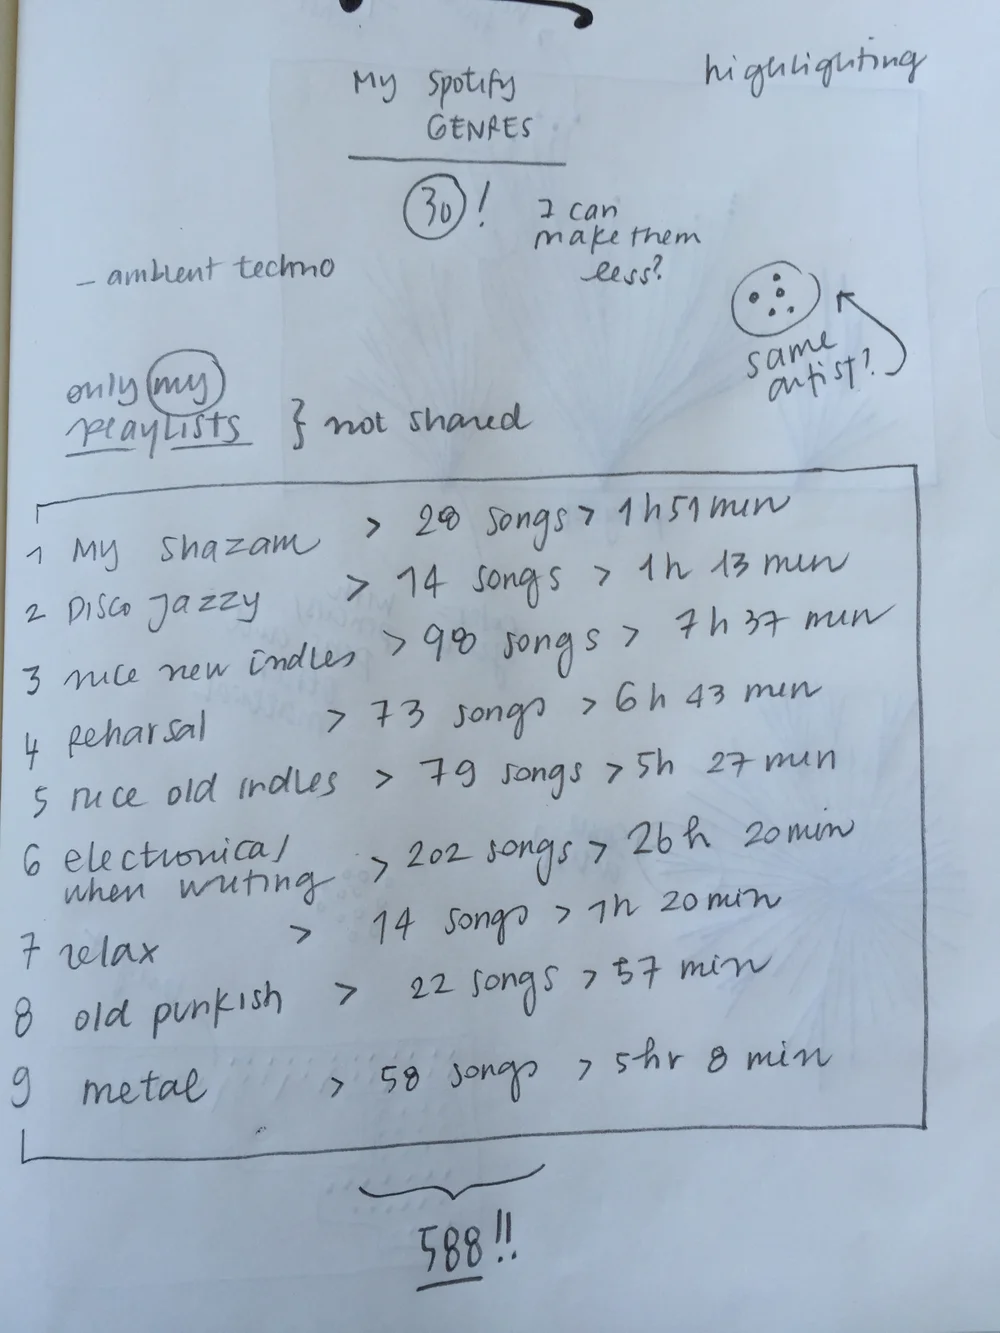 highlighting
My Spotify
GENRES
30! I can
make them
less?
- ambient techno
same
artist?
only my
playlists } not shared
1 My shazam > 28 songs > 1h51min
2 Disco jazzy > 14 songs > 1h 13 min
3 nice new indies > 98 songs > 7h37 min
4 Reharsal > 73 songs > 6h 43 min
5 nice old indies > 79 songs > 5h 27 min
6 electronica/
when writing > 202 songs > 26h 20min
7 relax > 14 songs > 1h 20min
8 old punkish > 22 songs > 57 min
9 metal > 58 songs > 5hr 8 min
588!!